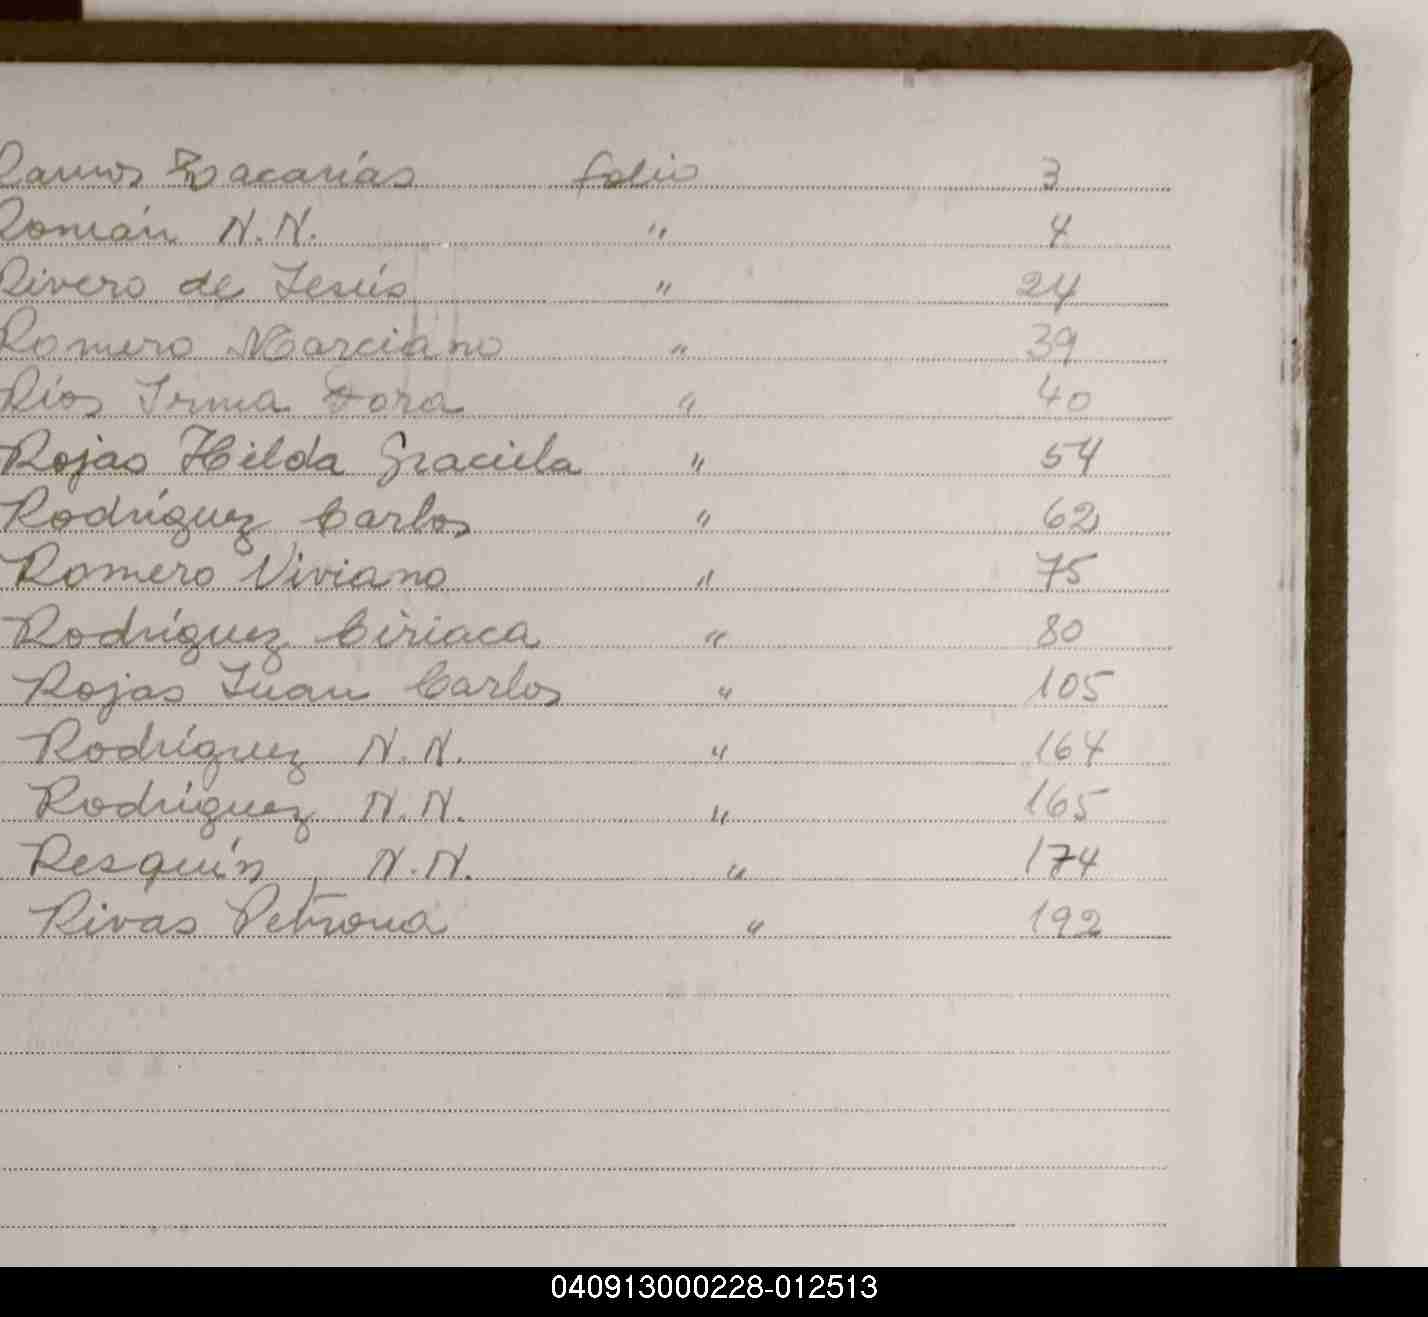 Ramos Zacarías folio 3
Román N.N. " 4
Rivero de Jesús " 24
Romero Marciano " 39
Ríos Irma Dora " 40
Rojas Hilda Graciela " 54
Rodríguez Carlos " 62
Romero Viviano " 75
Rodríguez Ciriaca " 80
Rojas Juan Carlos " 105
Rodríguez N.N. " 164
Rodríguez N.N. " 165
Resquín N.N. " 174
Rivas Petrona " 192
040913000228-012513